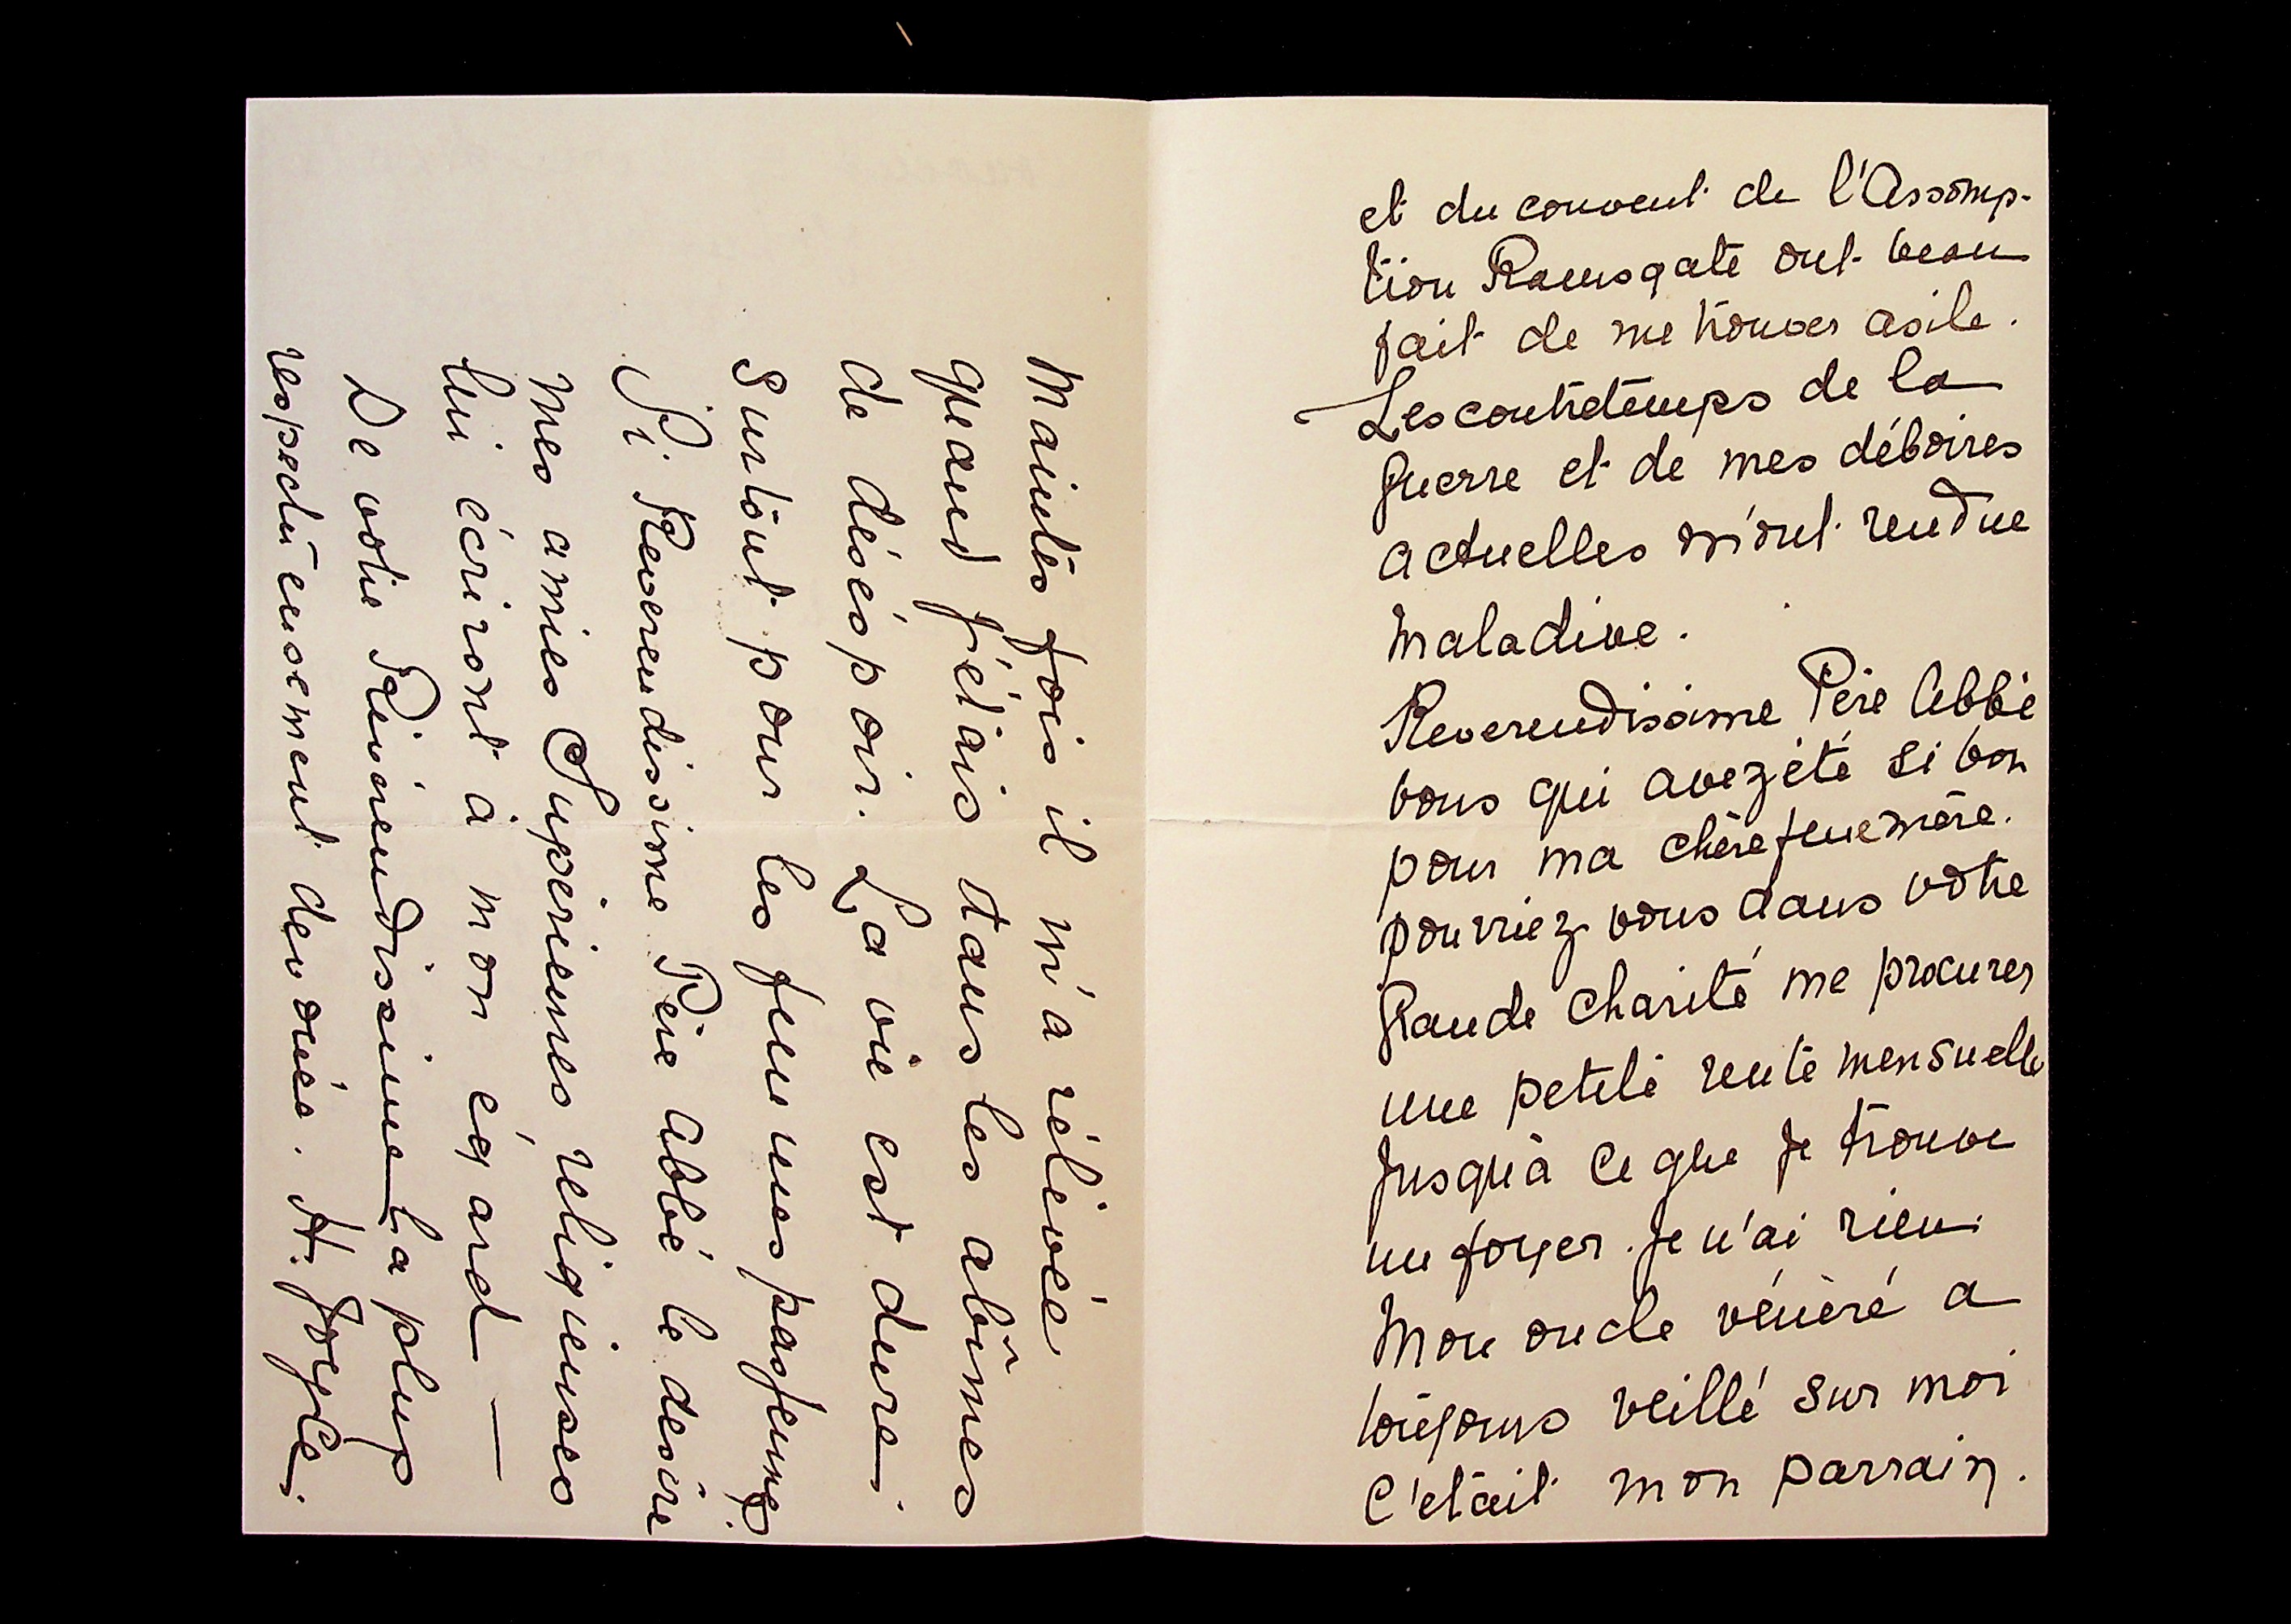 et du couvent de l'Assomp-
tion Ramsgate ont beau
fait de me trouver asile.
Les contretemps de la
guerre et de mes déboires
actuelles m'ont rendue
maladive.
Reverendissime Père Abbé
vous qui avez été si bon
pour ma chère feue mère.
pourriez vous dans votre
grande charité me procurer
une petite rente mensuelle
jusqu'à ce que je trouve
un foyer. Je n'ai rien.
Mon oncle vénéré a
toujours veillé sur moi
c'etait mon parrain.
Maintes fois il m'a rélévée
quand j'étais dans les abîmes
de déséspoir. La vie est dure
surtout pour les femmes pas jeunes.
Si Reverendissime Père Abbé le desire
mes amies Superieures religieuses
lui écriront à mon égard —
De votre Révérendissime la plus
respectueusement devouée. H. Joyce.